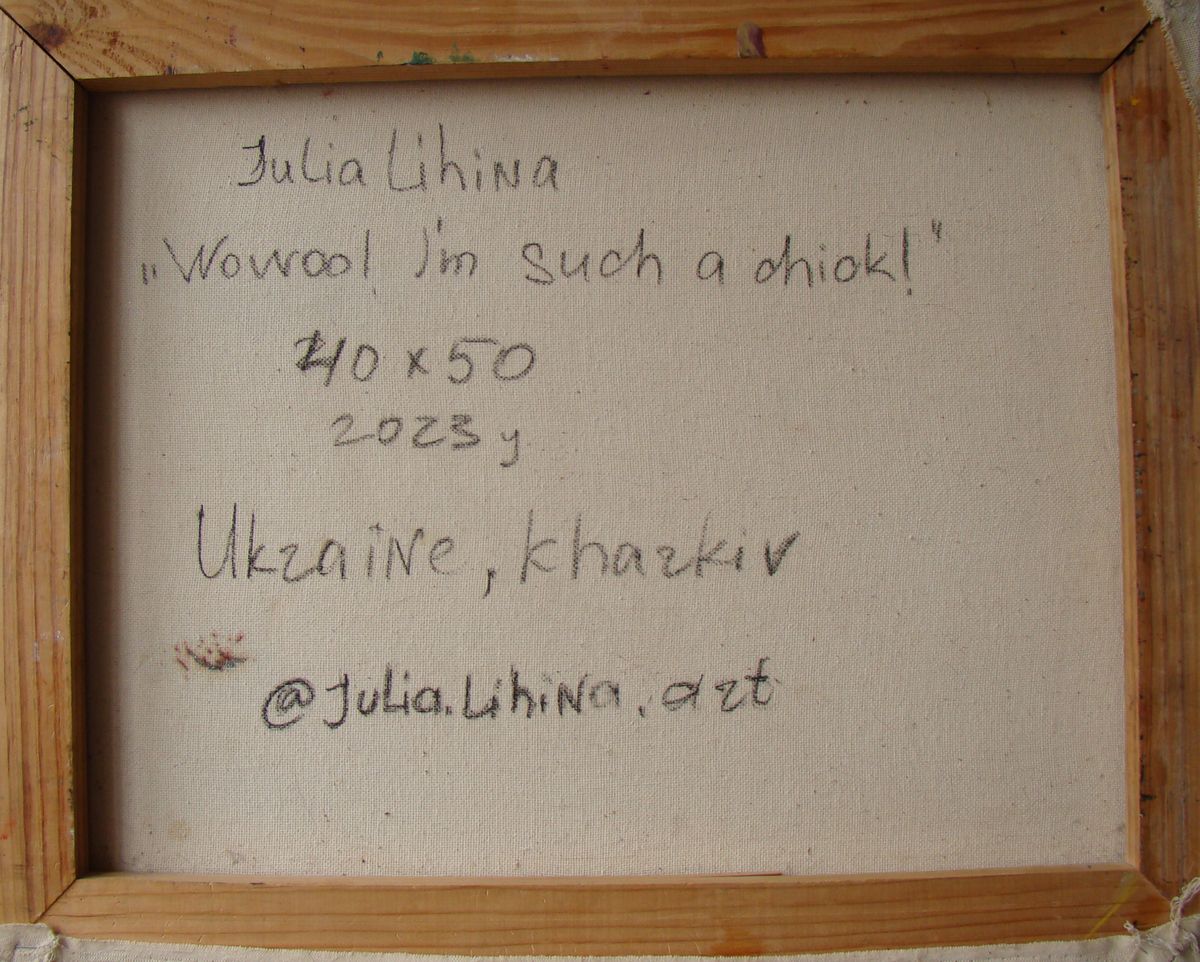 Julia Lihina
„Wowoo! I'm such a chick!"
40 x 50
2023 y
Ukraine, Kharkiv
@Julia.Lihina.art